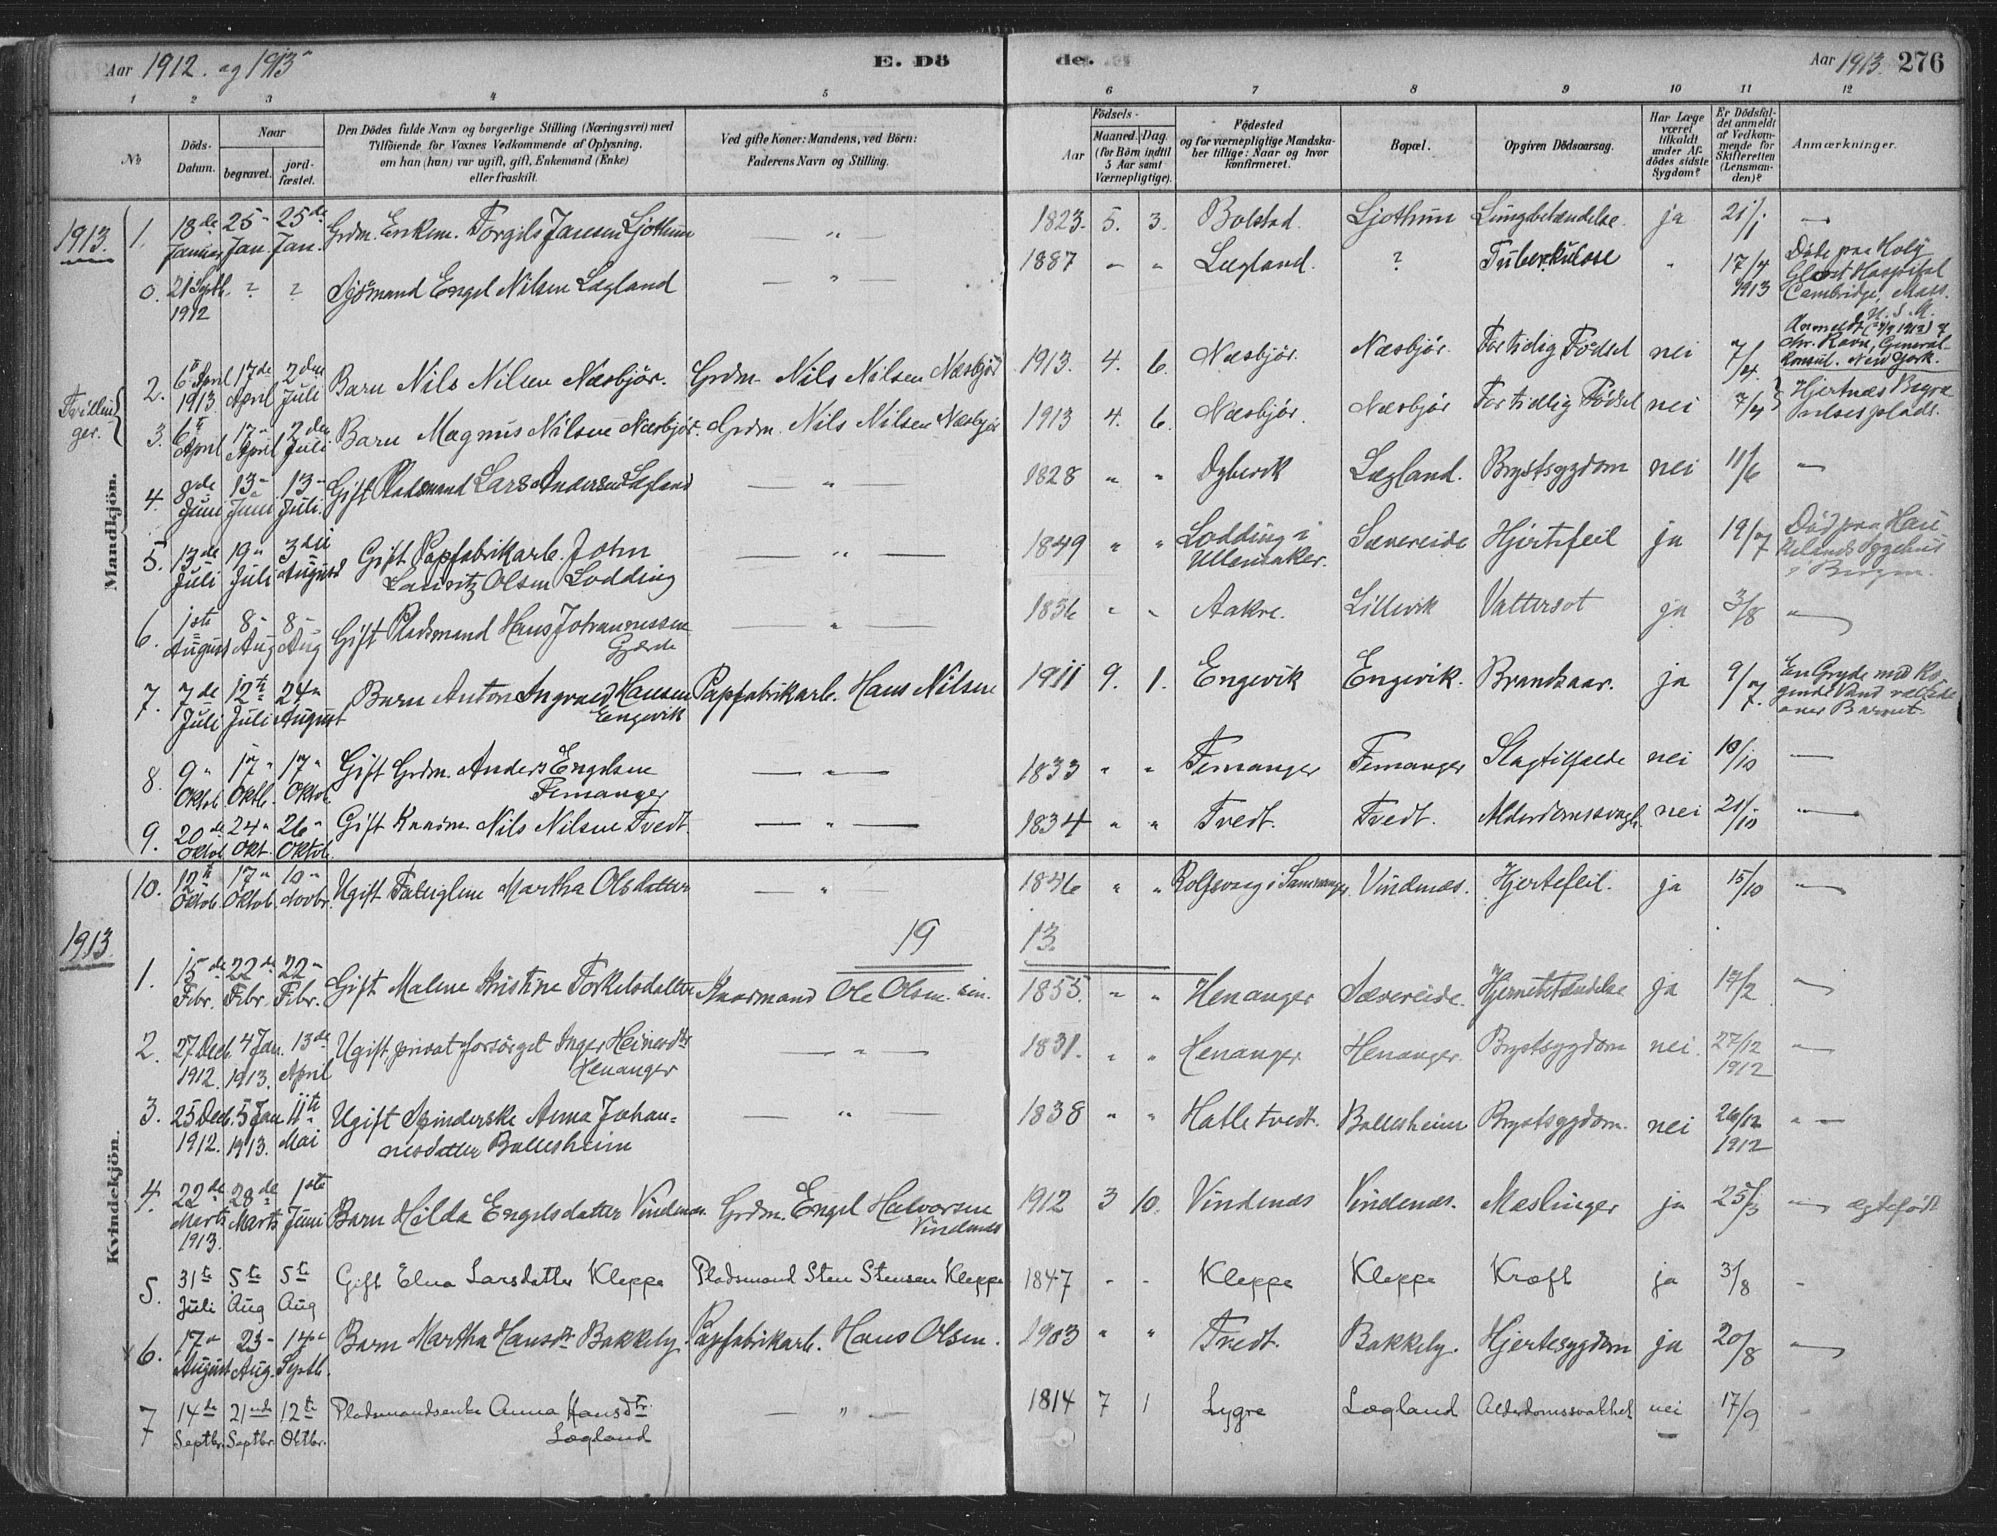 Aar 1912. og 1913
E. Dö
de.
Aar 1913. 276
1 2 3 4 5 6 7 8 9 10 11 12
No
Döds-Datum.
Naar
begravet.
jord-fæstet.
Den Dödes fulde Navn og borgerlige Stilling (Næringsvei) med
Tilföiende for Voxnes Vedkommende af Oplysning,
om han (hun) var ugift, gift, Enkemand (Enke)
eller fraskilt.
Ved gifte Koner: Mandens, ved Börn:
Faderens Navn og Stilling.
Aar
Födsels-
Maaned. Dag.
(for Börn indtil
5 Aar samt
Værnepligtige).
Födested
og for værnepligtige Mandska-
ber tillige: Naar og hvor
konfirmeret.
Bopæl.
Opgiven Dödsaarsag.
Har Læge
været
tilkaldt
under Af-
dödes sidste
Sygdom?
Er Dödsfal-
det anmeldt
af Vedkom-
mende for
Skifteretten
(Lensman-
den)?
Anmærkninger.
Mandkjön.
1913.
1. 18de Januar 25 Jan. 25de Jan. Grdm. Enkem. Torgils Jansen Ljothun — " — 1823. 5. 3. Bolstad. Ljothun Lungebetændelse. ja 21/1 —
0. 21 Septb. 1912 ? ? Sjömand Engel Nilsen Lægland — " — 1887 " " Lægland. ? Tuberkulose " 17/4 1913 Döde paa Holy Ghost Hospital Cambridge, Mass. U.S.A. Anmeldt Chr. Ravn, General-konsul. New York.
Tvillinger.
2. 6te April 1913. 17de April 2den Juli Barn Nils Nilsen Næsbjör. Grdm. Nils Nilsen Næsbjör 1913. 4. 6. Næsbjör. Næsbjör. For tidlig Födsel nei 7/4. Hjertnæs Begravelsesplads.
3. 6te April 17 April 2den Juli Barn Magnus Nilsen Næsbjör. Grdm. Nils Nilsen Næsbjör 1913 4. 6. Næsbjör. Næsbjör For tidlig Födsel nei 7/4
4. 8de Juni 13 Juni 13 Juli. Gift Pladsmand Lars Andersen Lægland — " — 1828 " " Dybevik Lægland. Brystsygdom nei 11/6 —
5. 13de Juli 19 Juli 3die August Gift Papfabrikarb. John Lauritz Olsen Lodding — " — 1849 " " Lodding i Ullensaker. Sævereide Hjertefeil ja 19/7 Död paa Haukelands Sygehus i Bergen.
6. 1ste August 8 Aug 8 Aug Gift Pladsmand Hans Johannessen Gjerde — " — 1856 " " Aakre. Lillevik Vattersot ja 3/8 —
7. 7de Juli 12te Juli 24 August Barn Anton Ingvald Hansen Engevik Papfabrikarb. Hans Nilsen 1911 9. 1. Engevik Engevik. Brandsaar. ja 9/7. En Gryde med kogende Vand væltede over Barnet.
8. 9 Oktob. 17 Oktb. 17 Oktob. Gift Grdm. Anders Engelsen Femanger — " — 1833 " " Femanger Femanger Slagtilfælde nei 10/10 —
9. 20de Oktob. 24 Okt. 26 Oktob. Gift Kaarm. Nils Nilsen Tvedt. — " — 1834 " " Tvedt. Tvedt. Alderdomssvagh. nei 21/10 —
10. 12te Oktob. 17 Oktob. 10 Novbr. Ugift Fattiglem Martha Olsdatter — " — 1846 " " Rolfsvaag i Samnanger. Vindenæs. Hjertefeil. ja 15/10 —
19 13.
Kvindekjön.
1913.
1. 15de Febr. 22de Febr. 22 Febr. Gift Malene Kristine Torkelsdatter Kaarmand Ole Olsen. 1855. " " Henanger Sævereide. Hjernebetændelse ja 17/2 —
2. 27 Decb. 1912. 4 Jan. 1913. 13de April Ugift, privat forsörget Inger Heinesdtr Henanger — " — 1831. " " Henanger Henanger. Brystsygdom nei. 27/12 1912 —
3. 25 Decb. 1912. 5 Jan 1913. 11te Mai Ugift Spinderske Anna Johannesdatter Ballesheim — " — 1838 " " Hatletvedt. Ballesheim Brystsygdom. nei 26/12 1912 " —
4. 22de Marts 1913. 28de Marts 1ste Juni Barn Hilda Engelsdatter Vindenæs. Grdm. Engel Halvorsen Vindenæs 1912 3 10. Vindenæs Vindenæs. Mæslinger ja 25/3 — ægtefödt
5. 31te Juli 5te Aug 5te Aug Gift Elna Larsdatter Kleppe Pladsmand Sten Stensen Kleppe 1847 - - Kleppe Kleppe Kræft ja 3/8 -
6. 17 August 23 Aug. 14 Septb. Barn Martha Hansdtr Bakkely. Papfabrikarb. Hans Olsen. 1903 " " Tvedt. Bakkely. Hjertesygdom ja 20/8 —
7 14de Septbr. 21nde Septbr. 12te Oktbr. Pladsmandsenke Anna Hansdtr. Lægland — " — 1814 7 1 Lygre Lægland Alderdomssvakhet nei 17/9 -